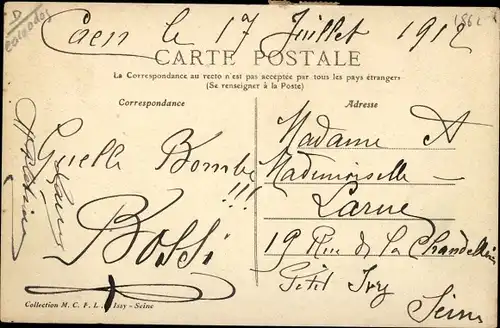 D
Calvados
1862
Caen le 17 Juillet 1912
CARTE POSTALE
La Correspondance au recto n'est pas acceptée par tous les pays étrangers
(Se renseigner à la Poste)
Correspondance
Quelle Bombe
!!!
Bossi
Collection M. C. F. I. Issy-Seine
Adresse
Madame &
Mademoiselle
Larue
19 Rue de la Chandelle
Petit Ivry
Seine